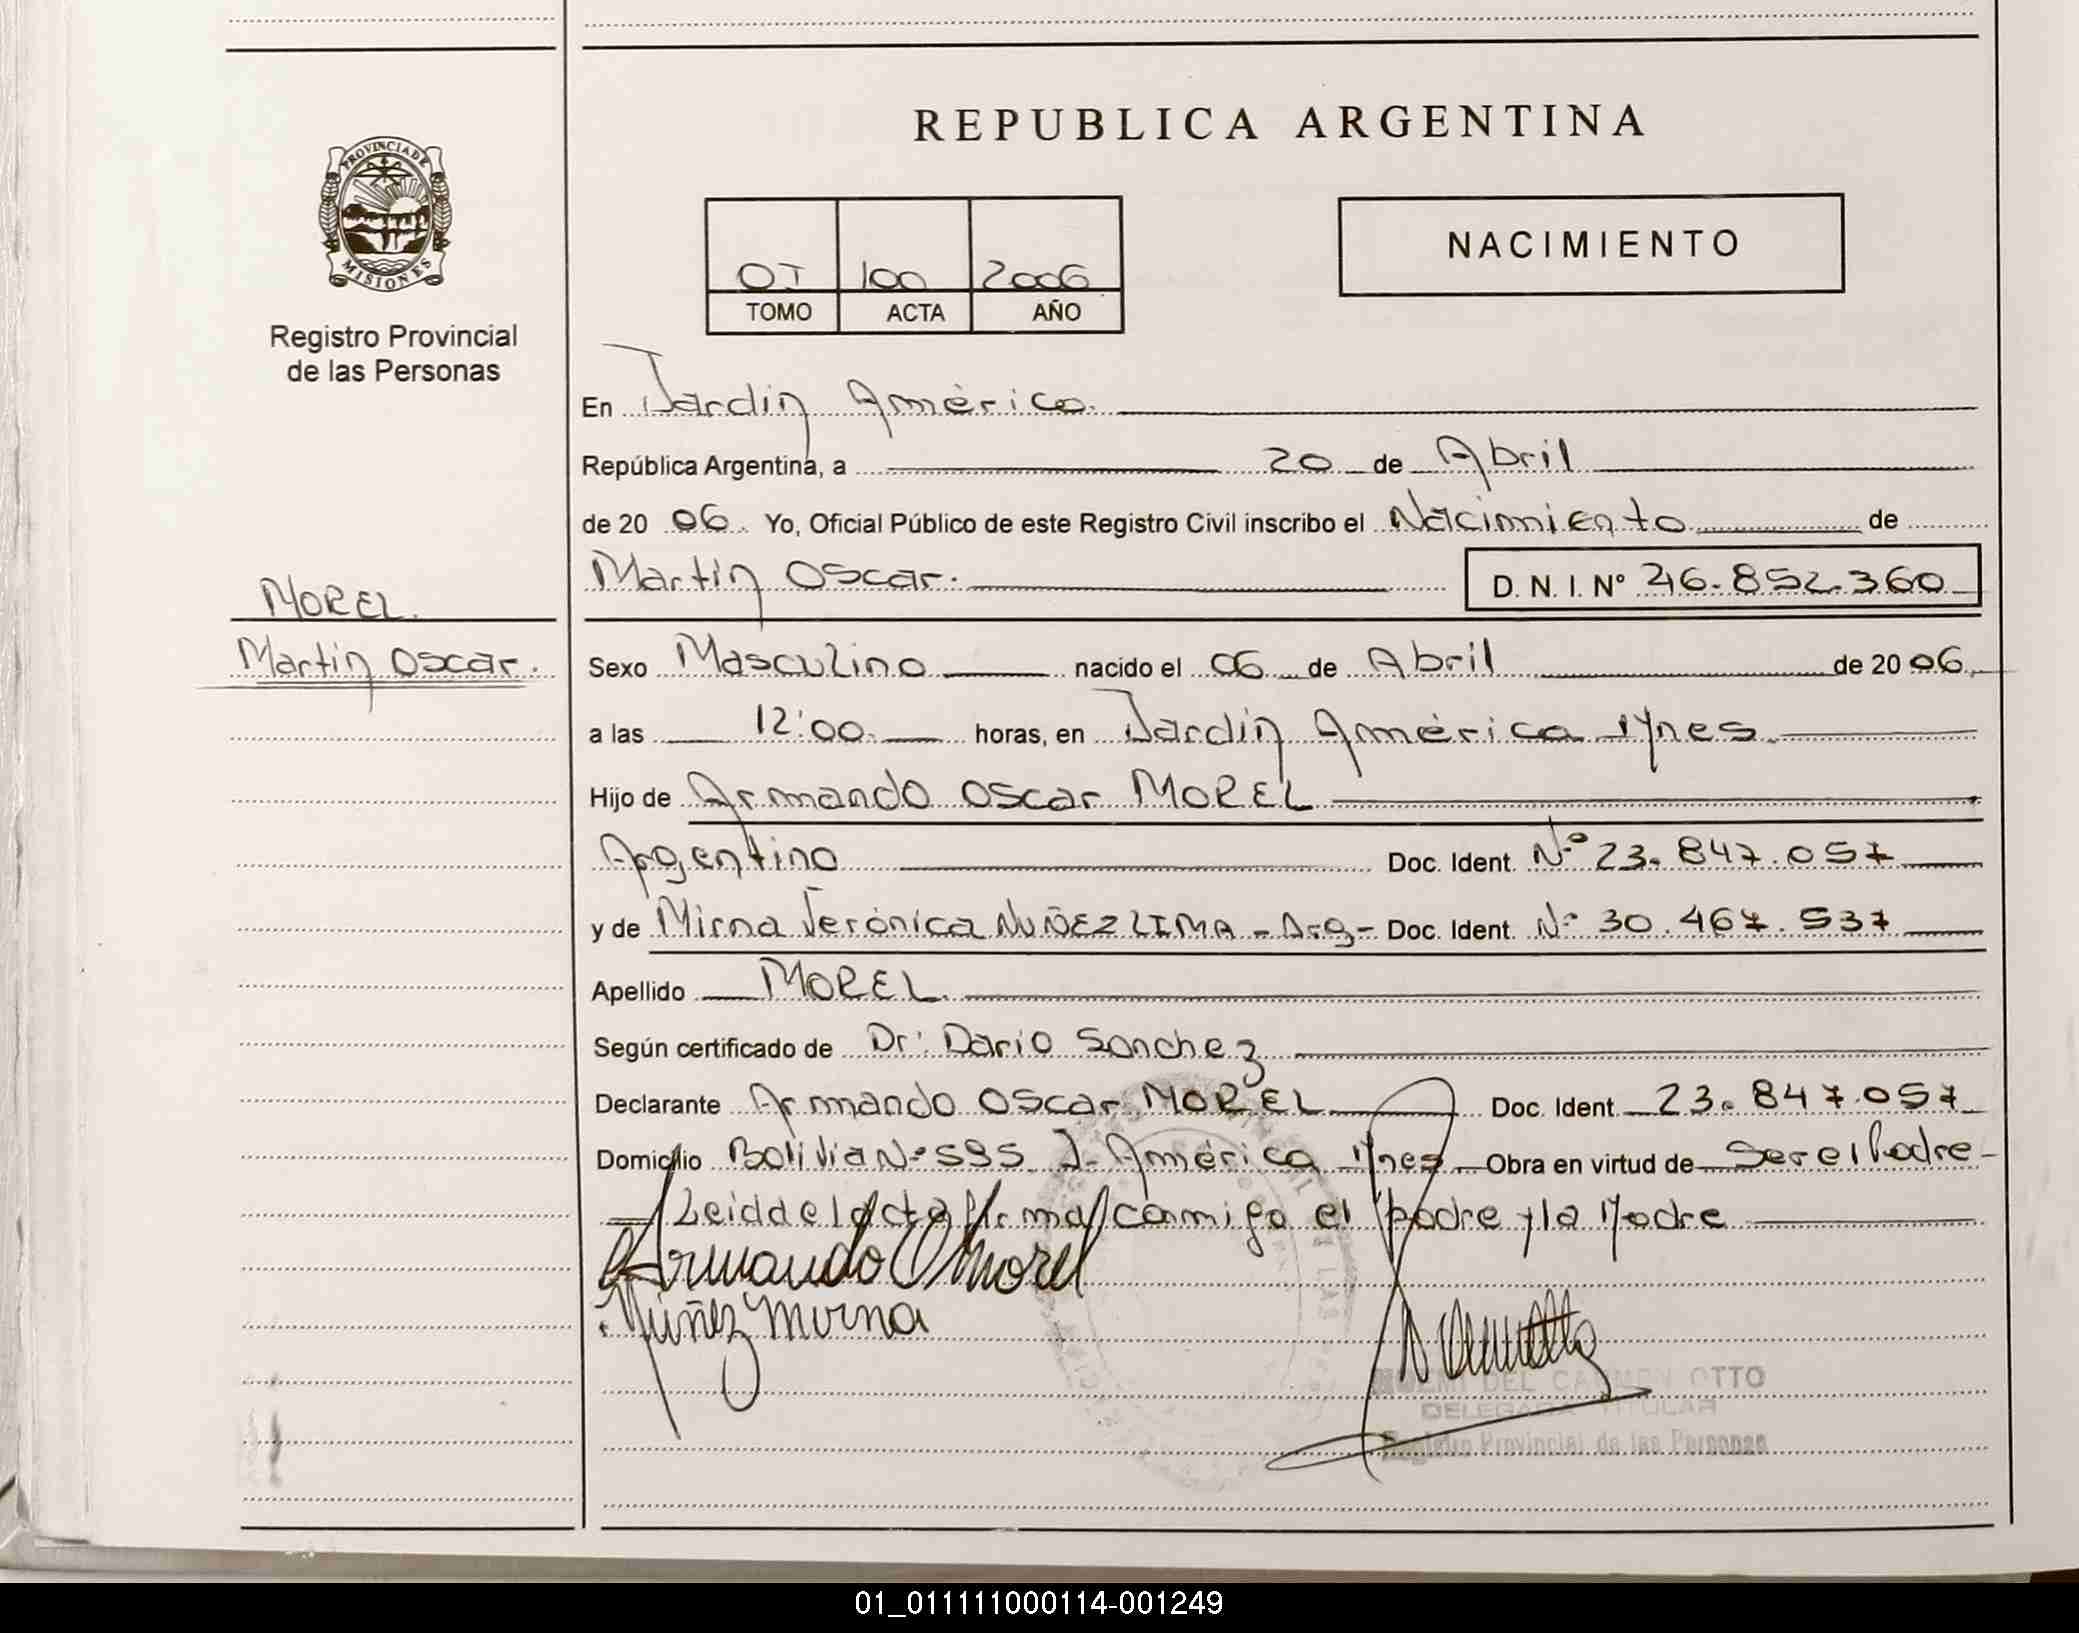 REPUBLICA ARGENTINA
PROVINCIA DE
MISIONES
Registro Provincial
de las Personas
NACIMIENTO
OI 100 2006
TOMO ACTA AÑO
En Jardin América.
República Argentina, a 20 de Abril
de 20 06. Yo, Oficial Público de este Registro Civil inscribo el Nacimiento de
Martin Oscar. D. N. I. Nº 46.852.360
MOREL.
Martin Oscar.
Sexo Masculino nacido el 06 de Abril de 20 06
a las 12:00 horas, en Jardin América Mnes
Hijo de Armando Oscar MOREL
Argentino Doc. Ident. Nº 23.847.057
y de Mirna Verónica NUÑEZ LIMA - Arg- Doc. Ident. Nº 30.467.537
Apellido MOREL
Según certificado de Dr. Dario Sanchez
Declarante Armando Oscar MOREL Doc. Ident. 23.847.057
Domicilio Bolivia Nº 595 J. América Mnes Obra en virtud de Ser el Padre-
Leida el acta firma conmigo el padre y la Madre
Armando O Morel
Núñez Mirna
NOEMI DEL CARMEN OTTO
DELEGADA TITULAR
Registro Provincial de las Personas
01_011111000114-001249